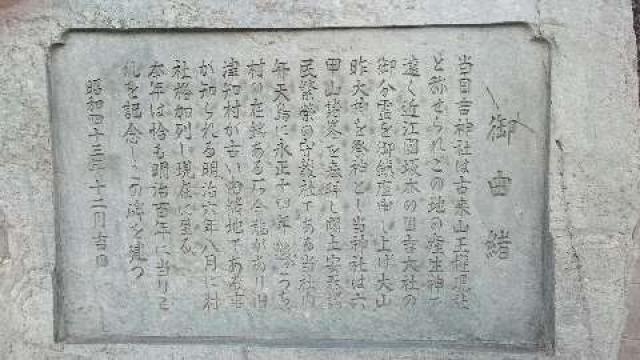 御由緒
当日吉神社は古来山王権現社
と称せられこの地の産生神で
遠く近江国坂本の日吉大社の
御分霊を御鎮座申し上げ大山
昨大神を祭神とし当神社は六
甲山諸峯を
民繁栄の守護社である当社内
弁天島に永正十四年
村の在銘ある石
津知村が古い由緒地である事
が知られる明治六年八月に村
社格加列し現在に至る
本年は恰も明治百年に当りこ
れを記念しこの碑を建つ
昭和四十三年十二月吉日